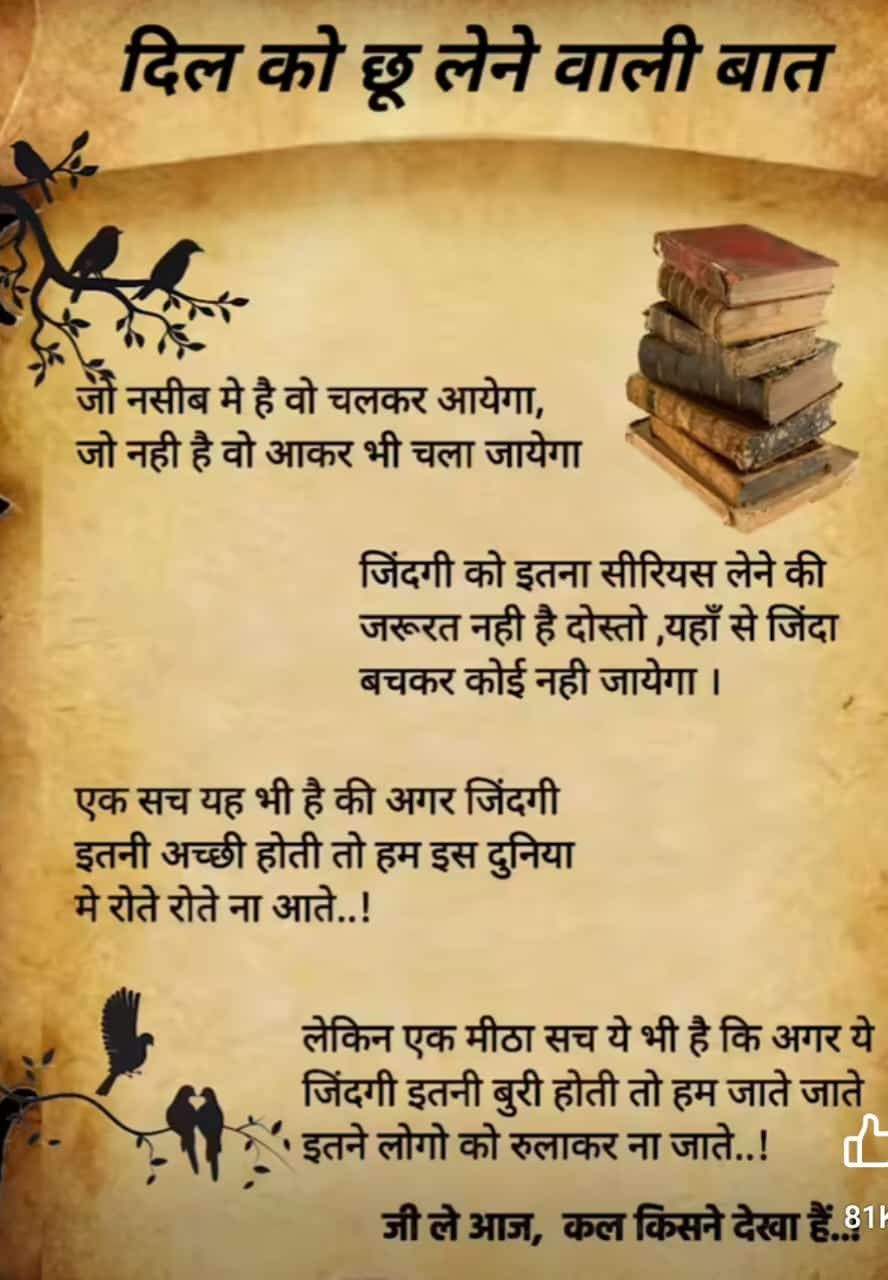 दिल को छू लेने वाली बात
जो नसीब मे है वो चलकर आयेगा,
जो नही है वो आकर भी चला जायेगा
जिंदगी को इतना सीरियस लेने की
जरूरत नही है दोस्तो ,यहाँ से जिंदा
बचकर कोई नही जायेगा ।
एक सच यह भी है की अगर जिंदगी
इतनी अच्छी होती तो हम इस दुनिया
मे रोते रोते ना आते..!
लेकिन एक मीठा सच ये भी है कि अगर ये
जिंदगी इतनी बुरी होती तो हम जाते जाते
इतने लोगो को रुलाकर ना जाते..!
जी ले आज, कल किसने देखा हैं..!
81K